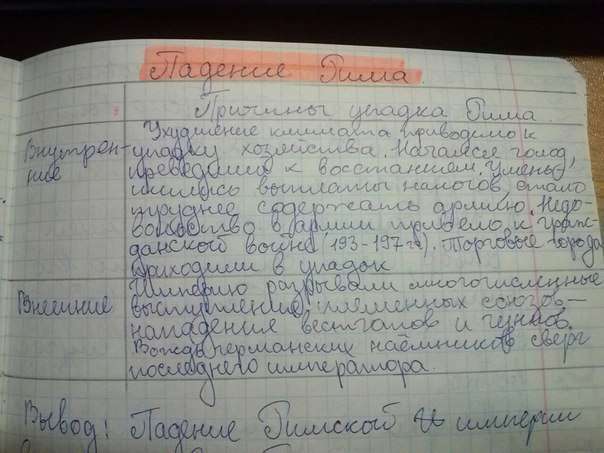 Падение Рима.
Причины упадка Рима.
Внутрен-
ние
Ухудшение климата приводило к
упадку хозяйства. Начался голод,
приведший к восстаниям. Умень-
шились выплаты налогов, стало
труднее содержать армию. Недо-
вольство в армии привело к граж-
данской войне (193-197 гг). Торговые города
приходили в упадок
Внешние
Империю разрывали многочисленные
выступления племенных союзов-
нападения вестготов и гуннов.
Вождь германских наёмников сверг
последнего императора.
Вывод: Падение Римской империи